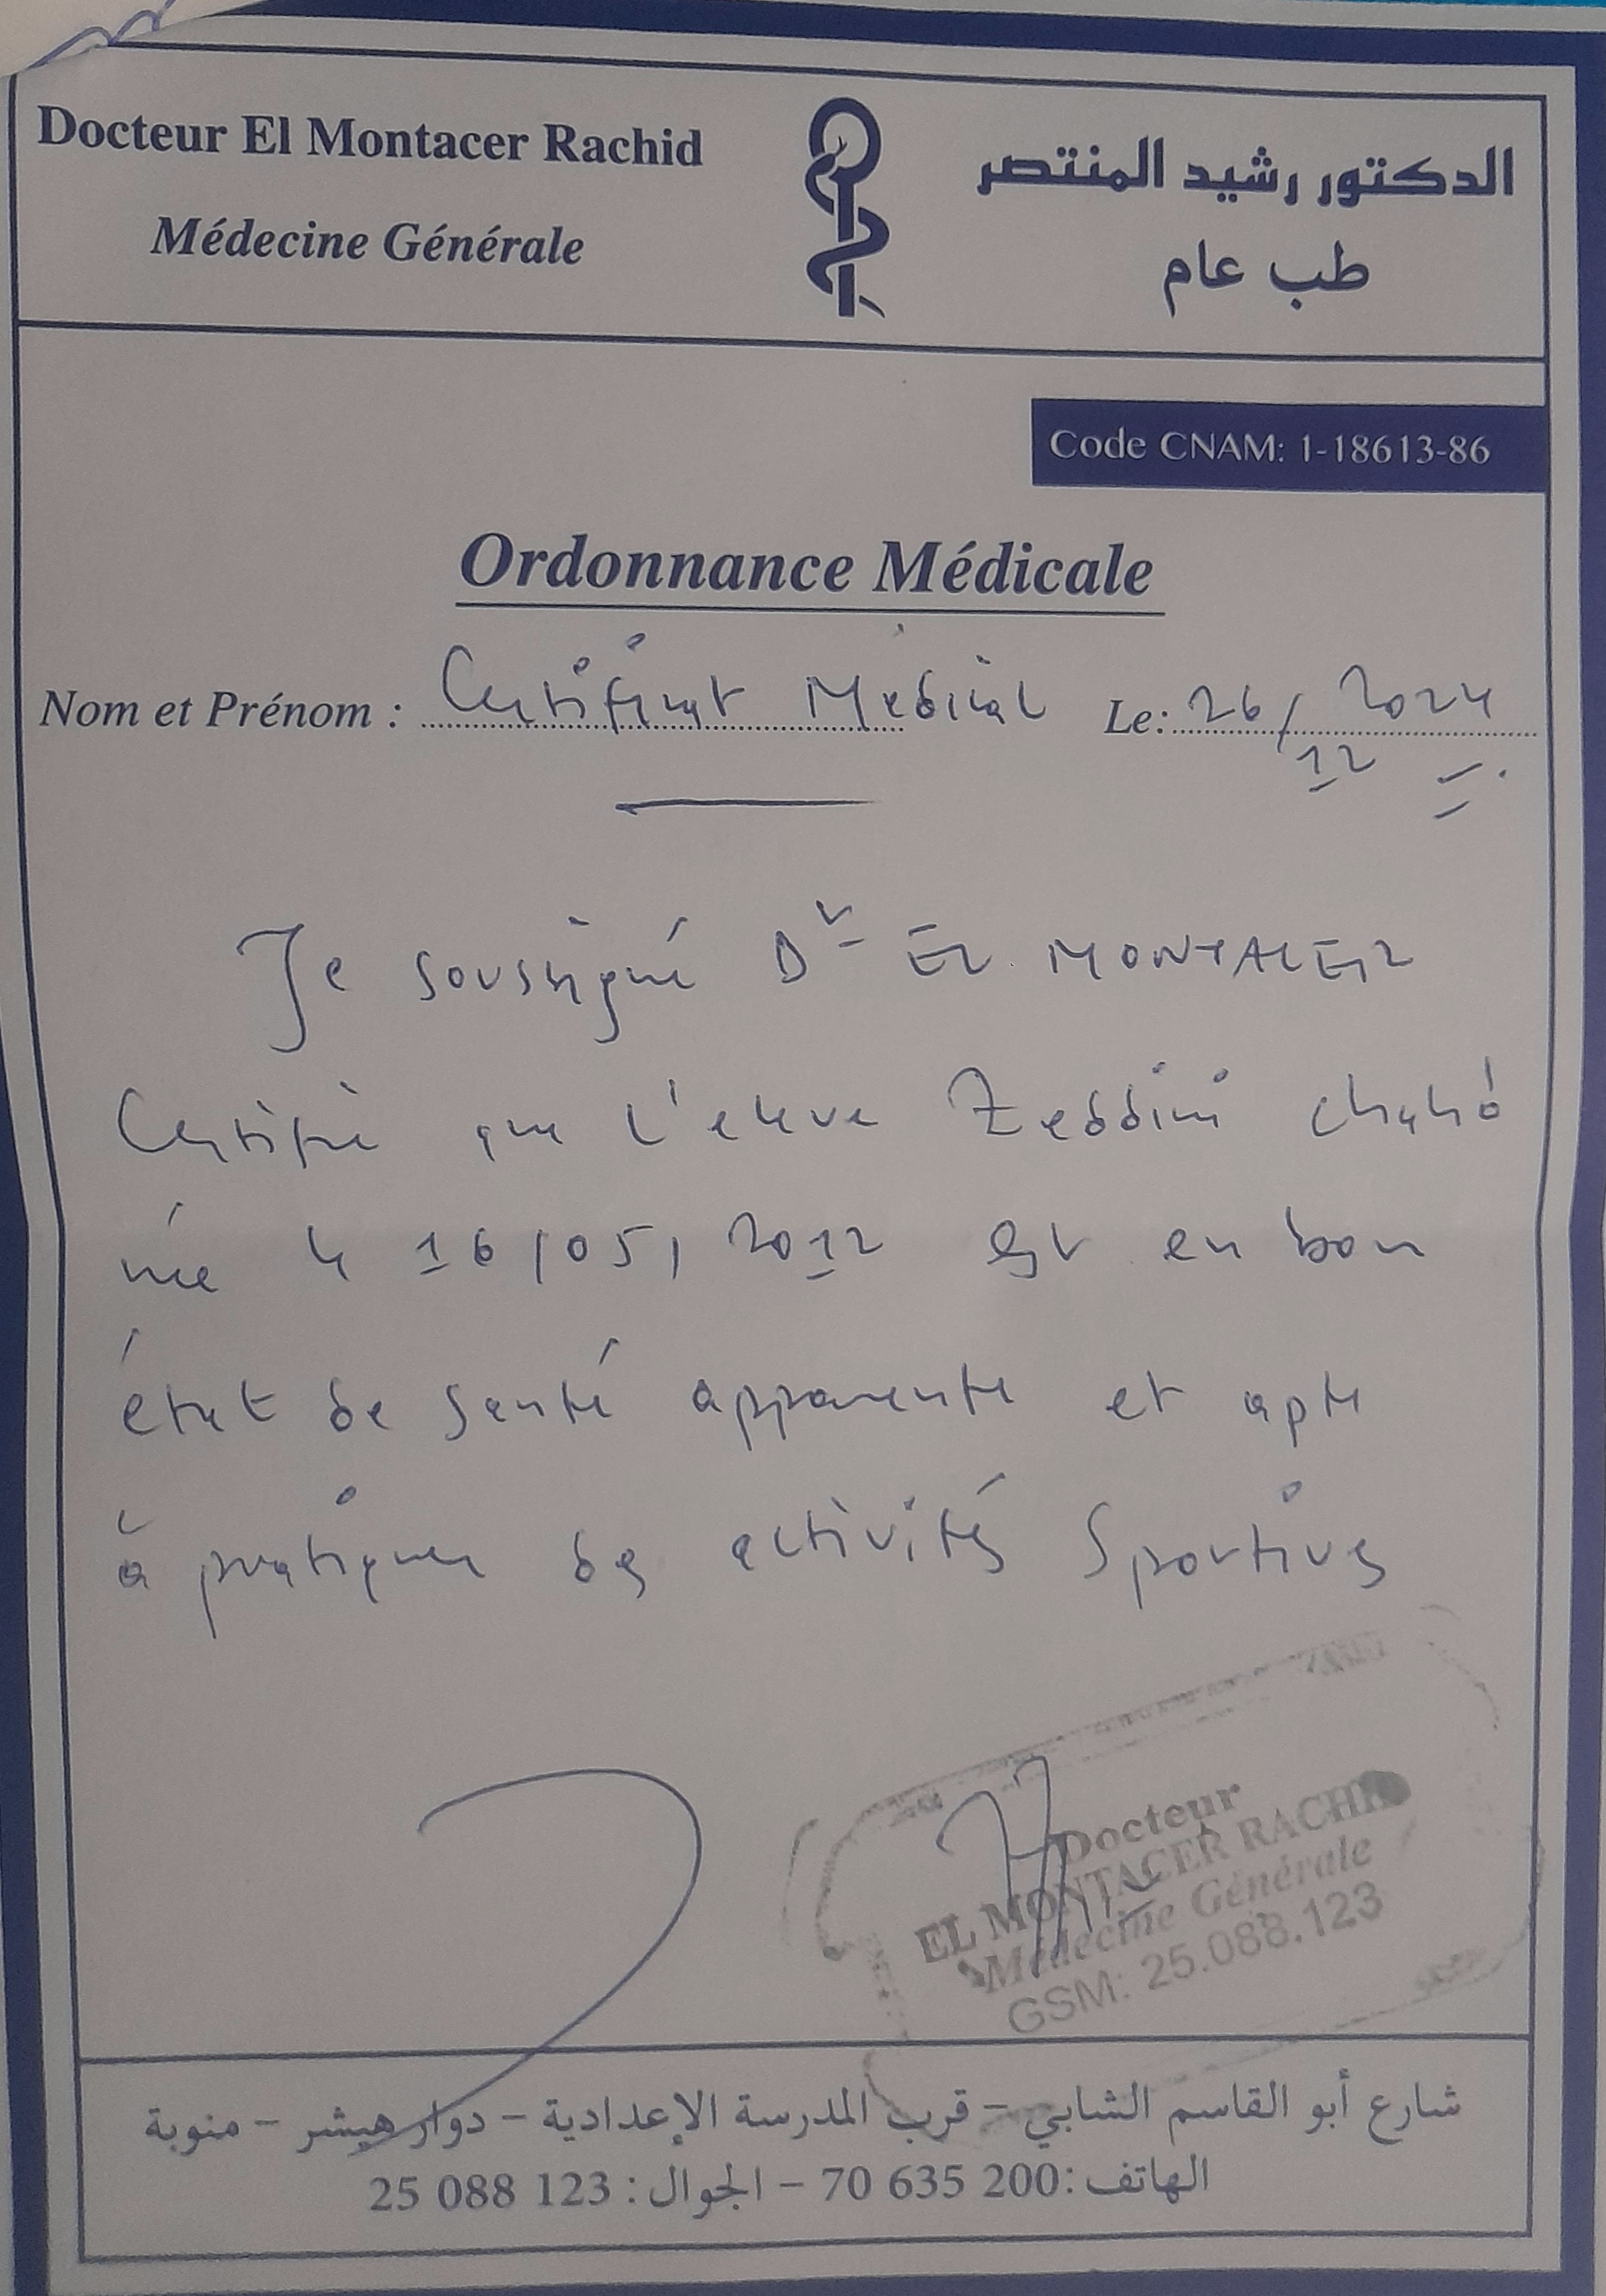 Docteur El Montacer Rachid
Médecine Générale
الدكتور رشيد المنتصر
طب عام
Code CNAM: 1-18613-86
Ordonnance Médicale
Nom et Prénom : Certificat Médical Le: 26/12 2024
Je soussigné Dr EL MONTACER
Certifie que l'eleve Zeddini
née le 16/05/2012 est en bon
état de santé apparente et apte
à pratiquer des activités Sportives
Docteur
EL MONTACER RACHID
Médecine Générale
GSM: 25.088.123
شارع أبو القاسم الشابي - قرب المدرسة الإعدادية - دوار هيشر - منوبة
الهاتف: 200 635 70 - الجوال: 123 088 25